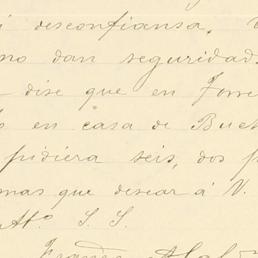 desconfiansa,
no dan seguridad
dise que en Torre
en casa de Buch
pidiera seis, dos p
mas que desear á V.
Atº. S. S.